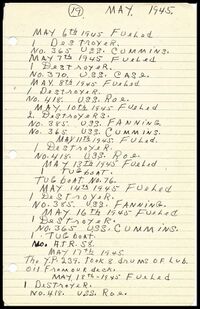 (19) MAY. 1945.
MAY 6th 1945 Fueled
1 Destroyer.
No. 365 U.S.S. Cummins.
MAY 7th 1945 Fueled
1 Destroyer.
No. 370. U.S.S. Case.
MAY. 8th 1945 Fueled
1 Destroyer.
No. 418. U.S.S. Roe.
MAY. 10th 1945 Fueled
2 Destroyers.
No. 385. U.S.S. FANNING
No. 365 U.S.S. Cummins.
MAY 11th 1945 Fueled
1 Destroyer.
No. 418. U.S.S. Roe.
MAY 13th 1945 Fueled
TUGboat.
TUGboat No. 76.
MAY 14th 1945 Fueled
1 Destroyer.
No. 385. U.S.S. FANNING.
MAY 16th 1945 Fueled
1 Destroyer.
No. 365 U.S.S. Cummins.
1 TUGboat.
No. ATR. 58.
MAY 17th 1945
The Y.P. 239. Took 8 drums of Lub.
oil From our deck.
MAY 18th 1945 Fueled
1 Destroyer.
No. 418. U.S.S. Roe.